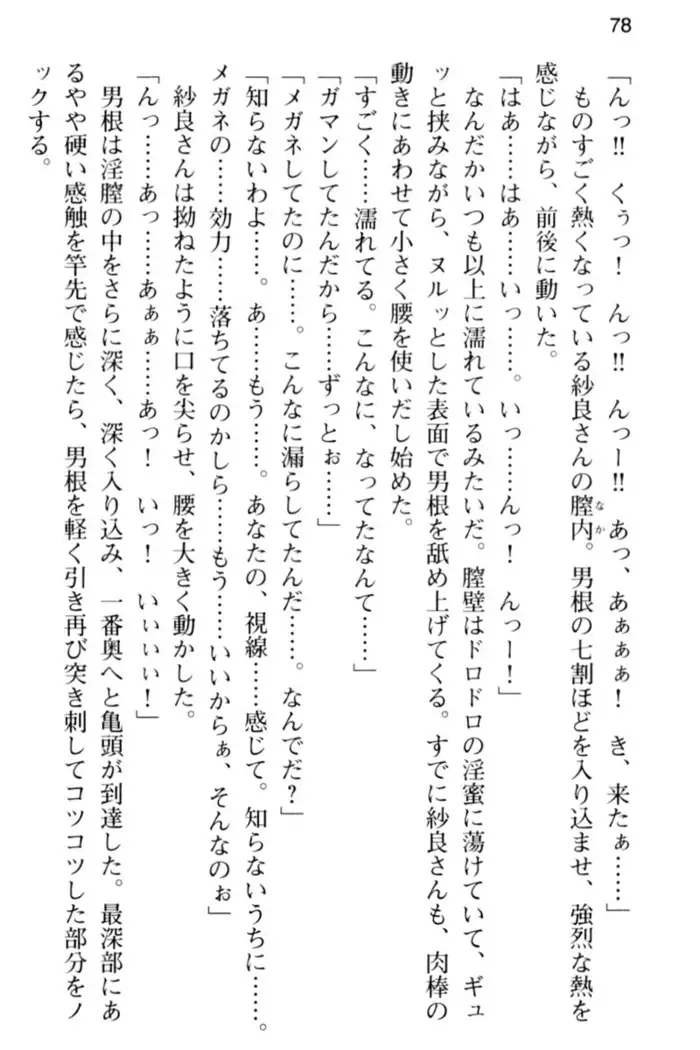 78
「んっ!! くぅっ! んっ!! んっー!! あっ、あぁぁぁ! き、来たぁ……」
ものすごく熱くなっている紗良さんの膣内。男根の七割ほどを入り込ませ、強烈な熱を
なか
感じながら、前後に動いた。
「はあ……はあ……いっ……。いっ……んっ! んっー!」
なんだかいつも以上に濡れているみたいだ。膣壁はドロドロの淫蜜に蕩けていて、ギュ
ッと挟みながら、ヌルッとした表面で男根を舐め上げてくる。すでに紗良さんも、肉棒の
動きにあわせて小さく腰を使いだし始めた。
「すごく……濡れてる。こんなに、なってたなんて……」
「ガマンしてたんだから……ずっとぉ……」
「メガネしてたのに……。こんなに漏らしてたんだ……。なんでだ?」
「知らないわよ……。あ……もう……。あなたの、視線……感じて。知らないうちに……。
メガネの……効力……落ちてるのかしら……もう……いいからぁ、そんなのぉ」
紗良さんは拗ねたように口を尖らせ、腰を大きく動かした。
「んっ……あっ……あぁぁ……あっ! いっ! いぃぃぃ!」
男根は淫膣の中をさらに深く、深く入り込み、一番奥へと亀頭が到達した。最深部にあ
るやや硬い感触を竿先で感じたら、男根を軽く引き再び突き刺してコツコツした部分をノ
ックする。